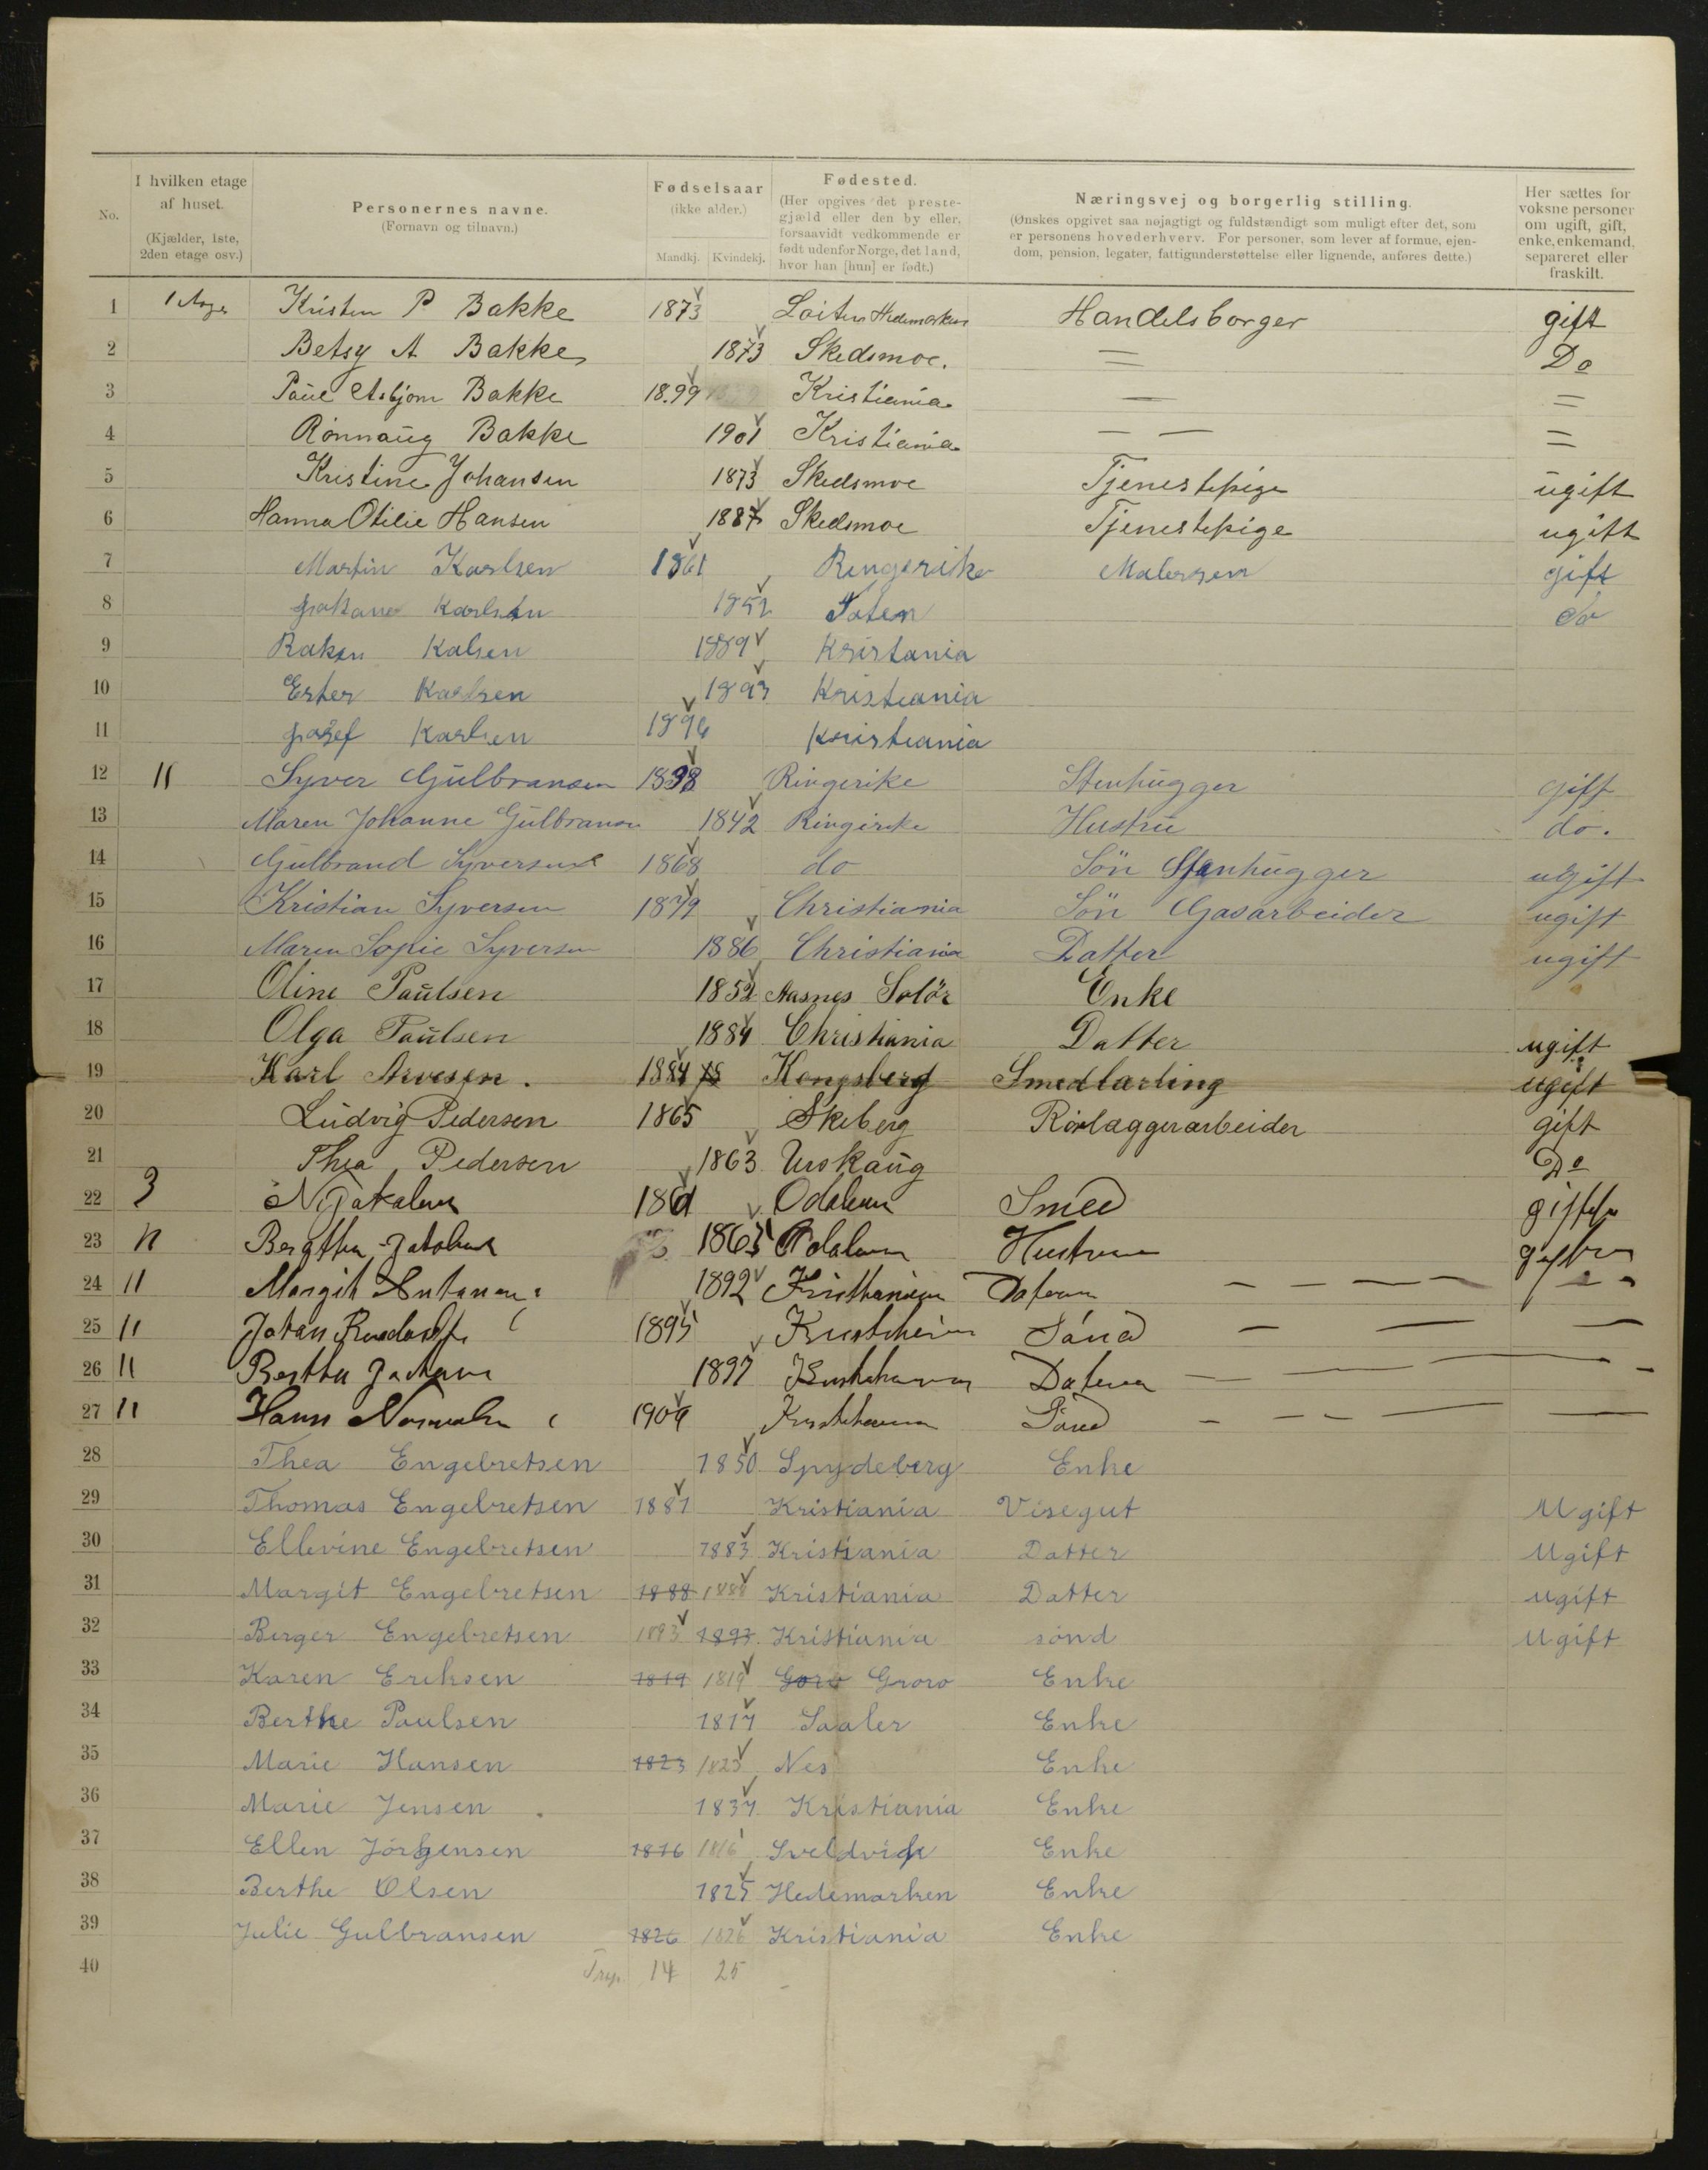 No.
I hvilken etage af huset.
(Kjælder, 1ste, 2den etage osv.)
Personernes navne.
(Fornavn og tilnavn.)
Fødselsaar
(ikke alder.)
Mandkj. Kvindekj.
Fødested.
(Her opgives det prestegjæld eller den by eller, forsaavidt vedkommende er født udenfor Norge, det land, hvor han [hun] er født.)
Næringsvej og borgerlig stilling.
(Ønskes opgivet saa nøjagtigt og fuldstændigt som muligt efter det, som er personens hovederhverv. For personer, som lever af formue, ejendom, pension, legater, fattigunderstøttelse eller lignende, anføres dette.)
Her sættes for voksne personer om ugift, gift, enke, enkemand, separeret eller fraskilt.
1 Kristen P Bakke 1873 Løiten Hedemarken Handelsborger gift
2 Betsy A Bakke 1873 Skedsmoe. = Do
3 Paul Asbjørn Bakke 1899 Kristiania — =
4 Rønnaug Bakke 1901 Kristiania — — =
5 Kristine Johansen 1873 Skedsmoe Tjenestepige ugift
6 Hanna Otilie Hansen 1887 Skedsmoe Tjenestepige ugift
7 Martin Karlsen 1861 Ringerike Malersven gift
8 Karlsen 1852 Toten do
9 Kalsen 1889 Kristania
10 Ester Karlsen 1893 Kristiania
11 Josef Karlsen 1896 Kristiania
12 " Syver Gulbransen 1838 Ringerike Stenhugger gift
13 Maren Johanne Gulbransen 1842 Ringerike Hustru do.
14 Gulbrand Syversen 1868 do Søn Stenhugger ugift
15 Kristian Syversen 1879 Christiania Søn Gasarbeider ugift
16 Maren Sopie Syversen 1886 Christiania Datter ugift
17 Oline Paulsen 1852 Aasnes Solør Enke
18 Olga Paulsen 1884 Christiania Datter ugift
19 Karl Arvesen. 1884 Kongsberg Smedlærling ugift
20 Ludvig Pedersen 1865 Skeberg Rørlæggerarbeider gift
21 Thea Pedersen 1863 Urskaug Do
22 3 N Jakobsen Odalen Smed
23 " 1863 Odalen Hustru
24 " Margit 1892
25 " Johan 1895
26 " Bertha 1897
27 " Hans
28 Thea Engebretsen 1850 Spydeberg Enke
29 Thomas Engebretsen 1881 Kristiania Visegut Ugift
30 Ellevine Engebretsen 1883 Kristiania Datter Ugift
31 Margit Engebretsen 1888 1888 Kristiania Datter ugift
32 Birger Engebretsen 1893 1893 Kristiania sønd Ugift
33 Karen Eriksen 1819 1819 Goro Groro Enke
34 Berthe Paulsen 1817 Saaler Enke
35 Marie Hansen 1823 1823 Nes Enke
36 Marie Jensen 1837 Kristiania Enke
37 Ellen Jørgensen 1816 1816 Sveldvik Enke
38 Berthe Olsen 1825 Hedemarken Enke
39 Julie Gulbransen 1826 1826 Kristiania Enke
40 14 25